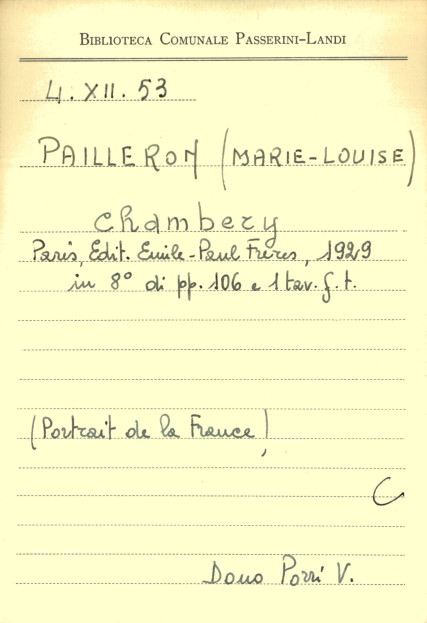 BIBLIOTECA COMUNALE PASSERINI-LANDI
4. XII. 53
PAILLERON (MARIE-LOUISE)
Chambery
Paris, Edit. Emile-Paul Frères, 1929
in 8° di pp. 106 e 1 tav. f. t.
(Portrait de la France)
C
Dono Porri V.